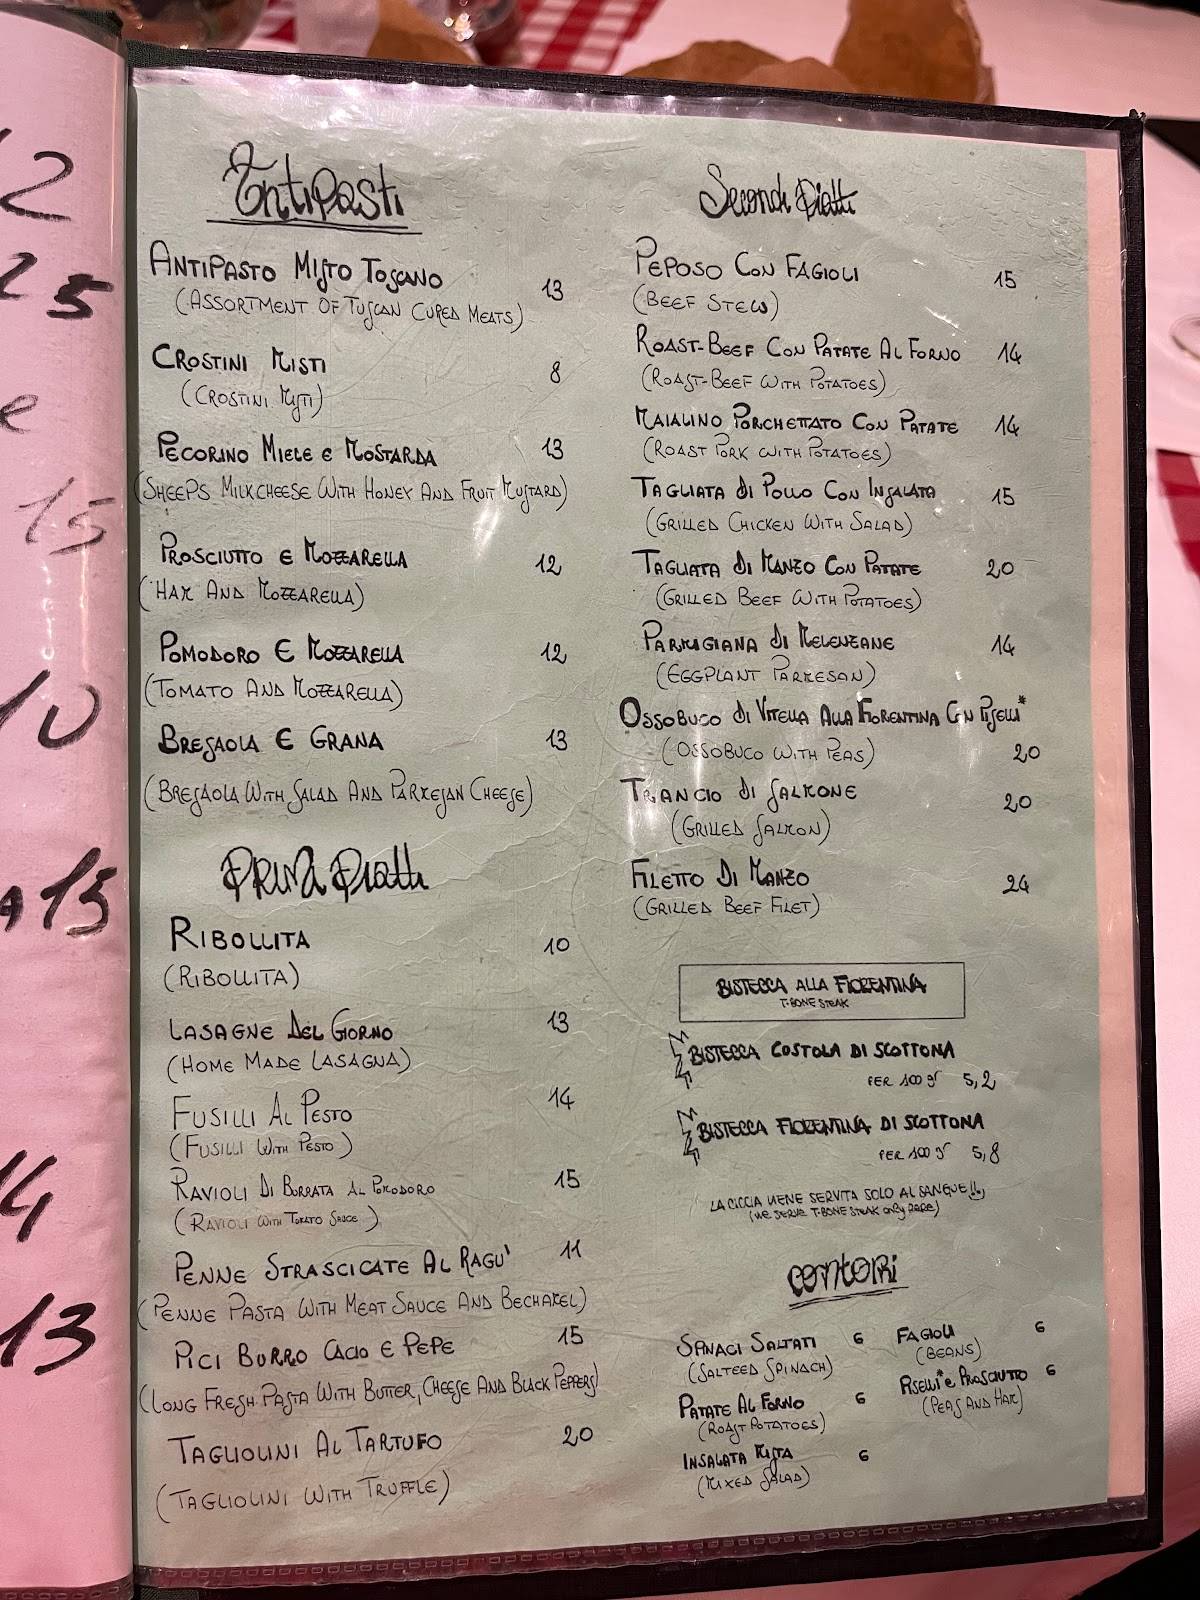 12
25
e
15
10
A 15
14
13
Antipasti
Antipasto Misto Toscano 13
(Assortment of Tuscan Cured Meats)
Crostini Misti 8
(Crostini Misti)
Pecorino Miele e Mostarda 13
(Sheeps Milk cheese With Honey And Fruit Mustard)
Prosciutto e Mozzarella 12
(Ham And Mozzarella)
Pomodoro E Mozzarella 12
(Tomato And Mozzarella)
Bresaola E Grana 13
(Bresaola With Salad And Parmesan Cheese)
Primi Piatti
Ribollita 10
(Ribollita)
Lasagne Del Giorno 13
(Home Made Lasagna)
Fusilli Al Pesto 14
(Fusilli With Pesto)
Ravioli Di Burrata Al Pomodoro 15
(Ravioli With Tomato Sauce)
Penne Strascicate Al Ragu' 11
(Penne Pasta With Meat Sauce And Bechamel)
Pici Burro Cacio E Pepe 15
(Long Fresh Pasta With Butter, Cheese And Black Peppers)
Tagliolini Al Tartufo 20
(Tagliolini With Truffle)
Secondi Piatti
Peposo Con Fagioli 15
(Beef Stew)
Roast-Beef Con Patate Al Forno 14
(Roast-Beef With Potatoes)
Maialino Porchettato Con Patate 14
(Roast Pork With Potatoes)
Tagliata di Pollo Con Insalata 15
(Grilled Chicken With Salad)
Tagliata Di Manzo Con Patate 20
(Grilled Beef With Potatoes)
Parmigiana di Melenzane 14
(Eggplant Parmesan)
Ossobuco di Vitella Alla Fiorentina Con Piselli*
(Ossobuco With Peas) 20
Trancio di Salmone 20
(Grilled Salmon)
Filetto Di Manzo 24
(Grilled Beef Filet)
Bistecca alla Fiorentina
T-Bone Steak
Bistecca Costola di Scottona
per 100 gr 5,2
Bistecca Fiorentina di Scottona
per 100 gr 5,8
La ciccia viene servita solo al sangue!!
(we serve T-Bone Steak only rare)
Contorni
Spinaci Saltati 6
(Salteed Spinach)
Patate Al Forno 6
(Roast Potatoes)
Insalata Mista 6
(Mixed Salad)
Fagioli 6
(Beans)
Piselli* e Prosciutto 6
(Peas And Ham)